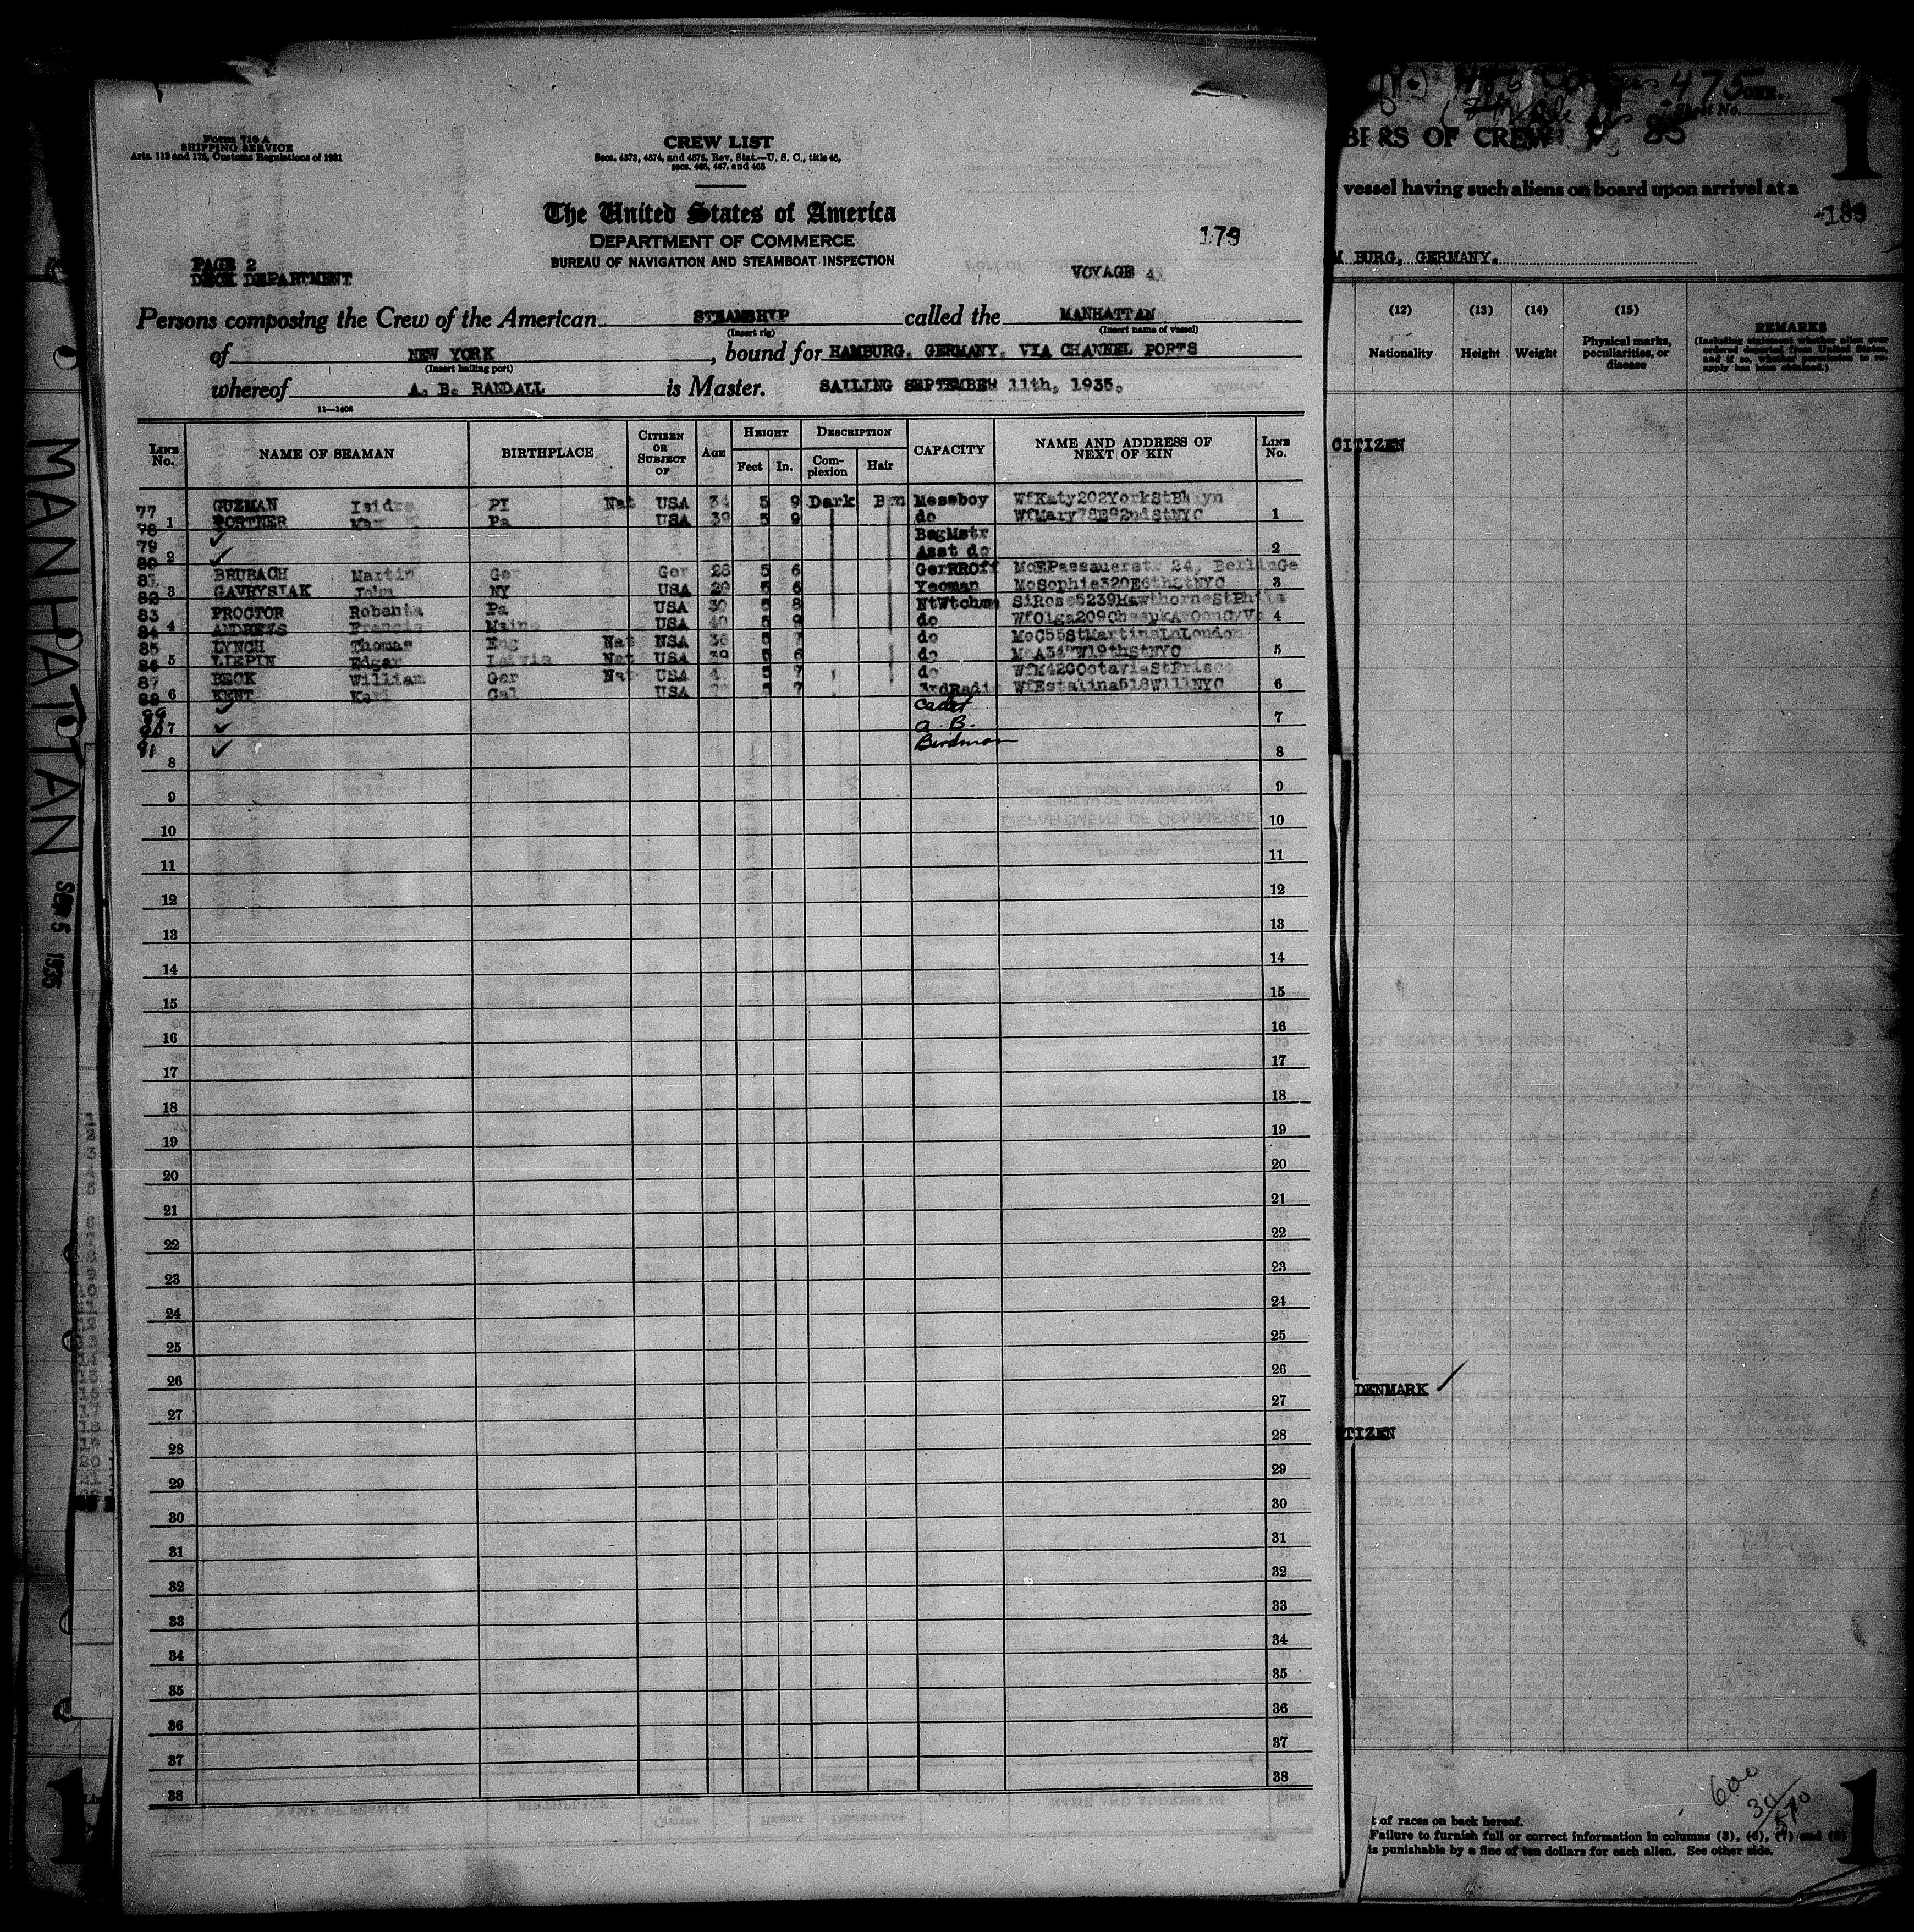 Form 710 A
SHIPPING SERVICE
Arts. 112 and 175, Customs Regulations of 1931
CREW LIST
Secs. 4573, 4574, and 4575, Rev. Stat.—U. S. C., title 46,
secs. 466, 467, and 468
The United States of America
DEPARTMENT OF COMMERCE
BUREAU OF NAVIGATION AND STEAMBOAT INSPECTION
179
PAGE 2
DECK DEPARTMENT
VOYAGE 4
Persons composing the Crew of the American STEAMSHIP called the MANHATTAN
(Insert rig) (Insert name of vessel)
of NEW YORK, bound for HAMBURG, GERMANY, VIA CHANNEL PORTS
(Insert hailing port)
whereof A. B. RANDALL is Master. SAILING SEPTEMBER 11th, 1935.
11—1408
LINE No. NAME OF SEAMAN BIRTHPLACE CITIZEN OR SUBJECT OF AGE HEIGHT Feet In. DESCRIPTION Complexion Hair CAPACITY NAME AND ADDRESS OF NEXT OF KIN LINE No.
77 GUZMAN Isidro PI Nat USA 34 5 9 Dark Brn Messboy WfKaty202YorkStBklyn
78 PORTNER Max Pa USA 39 5 9 do WfMary78E92ndStNYC
79 ✓ BagMstr
80 ✓ Asst do
81 BRUBACH Martin Ger Ger 28 5 6 GerRROff MoEPassauerstr 24, BerlinGe
82 GAVRYSIAK John NY USA 29 5 6 Yeoman MoSophie320E6thStNYC
83 PROCTOR Robenta Pa USA 30 5 8 NtWtchmn SiRose5239HawthorneStPhila
84 ANDREWS Francis Maine USA 40 5 9 do
85 LYNCH Thomas Eng Nat NSA 36 5 7 do MoC55StMartinsLnLondon
86 LIEPIN Edgar Latvia Nat USA 39 5 6 do
87 BECK William Ger Nat USA 5 7 do WfM420OctaviaStFrisco
88 KENT Karl Cal USA 5 7 3rdRadio WfEstalina518W111NYC
89 ✓ Cadet
90 ✓ A. B.
91 ✓
1 1
2 2
3 3
4 4
5 5
6 6
7 7
8 8
9 9
10 10
11 11
12 12
13 13
14 14
15 15
16 16
17 17
18 18
19 19
20 20
21 21
22 22
23 23
24 24
25 25
26 26
27 27
28 28
29 29
30 30
31 31
32 32
33 33
34 34
35 35
36 36
37 37
38 38
MANHATTAN SEP 5 1935
475
Sheet No.
BERS OF CREW
85
1
vessel having such aliens on board upon arrival at a
189
M BURG, GERMANY.
(12) (13) (14) (15)
Nationality Height Weight Physical marks, peculiarities, or disease REMARKS
(Including statement whether alien ever ordered deported from United States and if so, whether permission to reapply has been obtained.)
CITIZEN
DENMARK ✓
TIZEN
600
30
570
t of races on back hereof.
Failure to furnish full or correct information in columns (3), (6), (7) and (8)
is punishable by a fine of ten dollars for each alien. See other side.
1
1